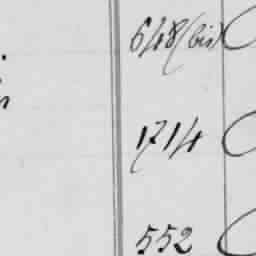 648 (bis)
1714
552